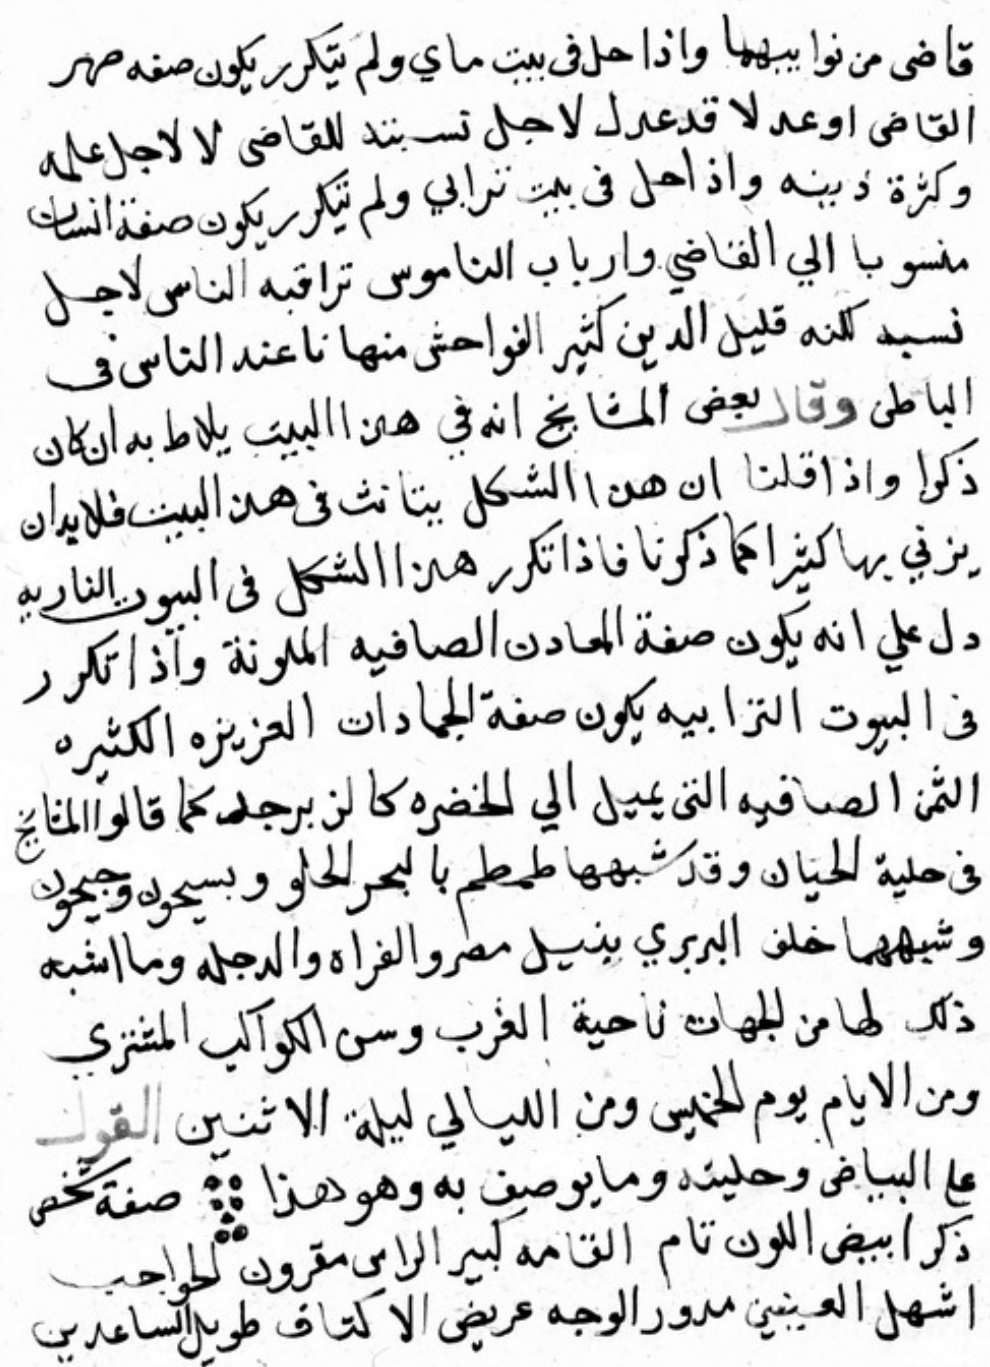 قاضى من نوابيهها واذا حل فى بيت ماي ولم يتكرر يكون صفه صهر
القاضى اوعدلا قد عدل لاجل نسبته للقاضى لا لاجل علمه
وكثرة دينه واذا حل فى بيت ترابي ولم يتكرر يكون صفة انسان
منسوبا الي القاضي وارباب الناموس تراقبه الناس لاجل
نسبه لكنه قليل الدين كثير الفواحش منها نا عند الناس فى
الباطن وقال بعض المشايخ انه في هذا البيت يلاط به ان كان
ذكرا واذا قلنا ان هذا الشكل يتانث فى هذا البيت فلابد ان
يزني بها كثيرا كما ذكرنا فاذا تكرر هذا الشكل فى البيوت الناريه
دل علي انه يكون صفة المعادن الصافيه الملونة واذا تكرر
فى البيوت الترابيه يكون صفة الجمادات العزيزه الكثيره
الثمن الصافيه التى يميل الي الخضره كالزبرجد كما قالوا المشايخ
فى حلية الحيان وقد شبهها طمطم بالبحر الحلو وبسيحون وجيحون
وشبهها خلف البربري بنيل مصر والفراه والدجله وما اشبه
ذلك لها من الجهات ناحية الغرب وسن الكواكب المشتري
ومن الايام يوم الخميس ومن الليالي ليلة الاثنين القول
على البياض وحليته وما يوصف به وهو هذا صفة شخص
ذكر ابيض اللون تام القامه كبير الراس مقرون الحواجب
اشهل العينين مدور الوجه عريض الاكتاف طويل الساعدين